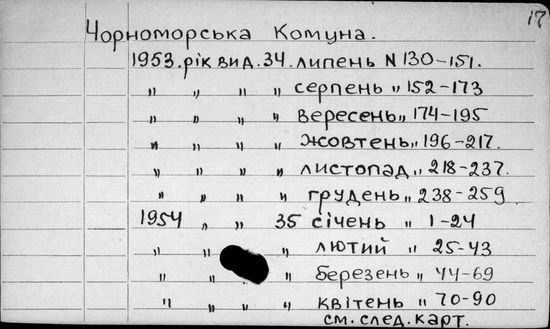 17
Чорноморська Комуна.
1953.рік вид.34.липень N 130-151.
" " " " серпень " 152-173
" " " " вересень " 174-195
" " " " жовтень " 196-217.
" " " " листопад " 218-237.
" " " " грудень " 238-259
1954 " " 35 січень " 1-24
" " " лютий " 25-43
" " " березень " 44-69
" " " " квітень " 70-90
см. след. карт.